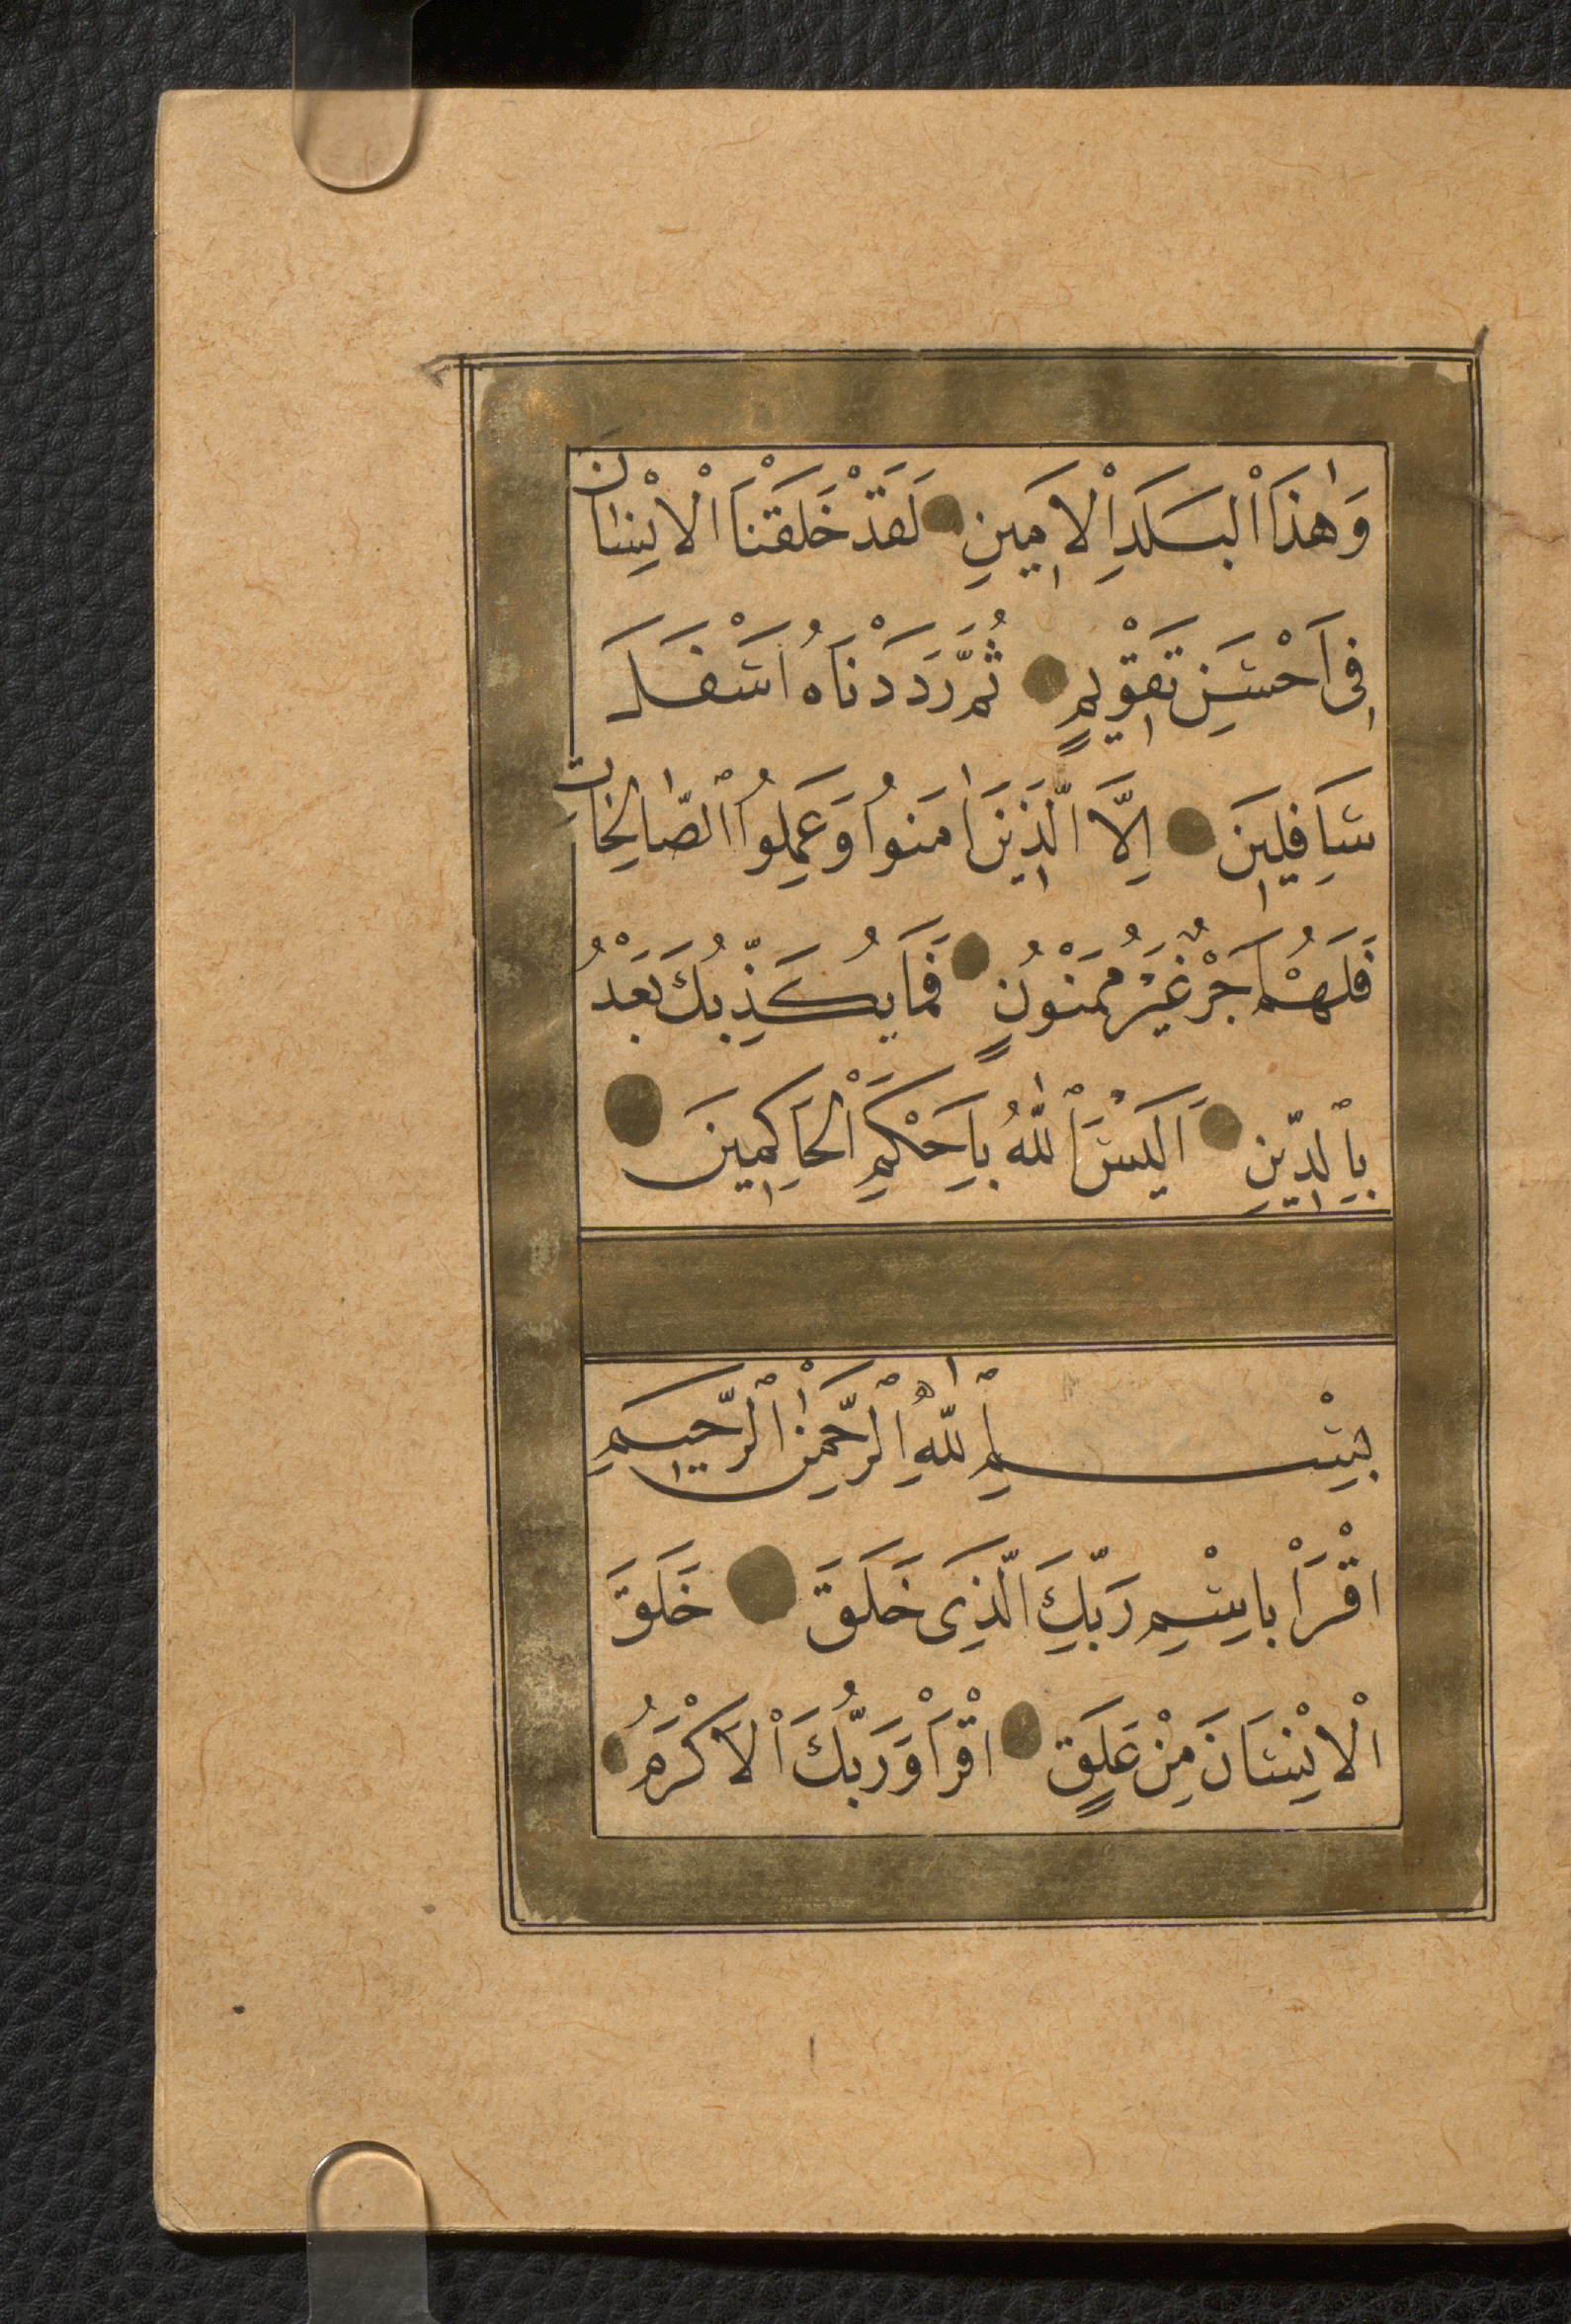 وَهٰذَا الْبَلَدِ الْاَمِينِ لَقَدْ خَلَقْنَا الْاِنْسَانَ
فِى اَحْسَنِ تَقْوِيمٍ ثُمَّ رَدَدْنَاهُ اَسْفَلَ
سَافِلِينَ اِلَّا الَّذِينَ اٰمَنُوا وَعَمِلُوا الصَّالِحَاتِ
فَلَهُمْ اَجْرٌ غَيْرُ مَمْنُونٍ فَمَا يُكَذِّبُكَ بَعْدُ
بِالدِّينِ اَلَيْسَ اللّٰهُ بِاَحْكَمِ الْحَاكِمِينَ
بِسْمِ اللّٰهِ الرَّحْمٰنِ الرَّحِيمِ
اقْرَأْ بِاسْمِ رَبِّكَ الَّذِى خَلَقَ خَلَقَ
الْاِنْسَانَ مِنْ عَلَقٍ اقْرَأْ وَرَبُّكَ الْاَكْرَمُ